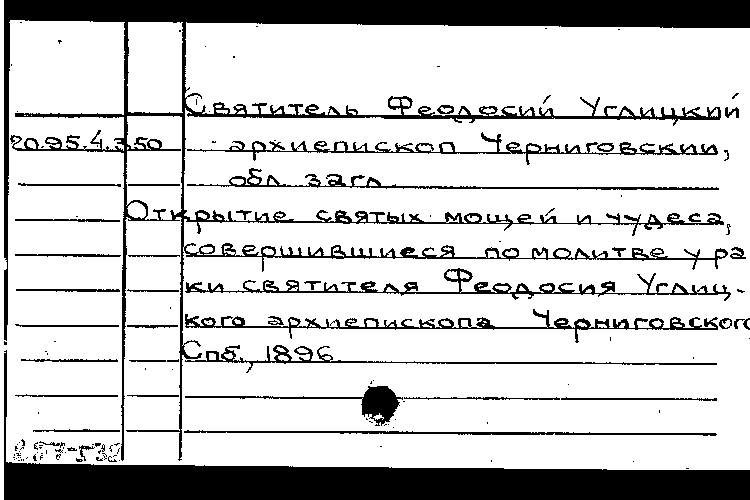 Святитель Феодосий Углицкий
20.95.4.350 архиепископ Черниговский,
обл. загл.
Открытие святых мощей и чудеса,
совершившиеся по молитве у ра
ки святителя Феодосия Углиц-
кого архиепископа Черниговского
Спб., 1896.